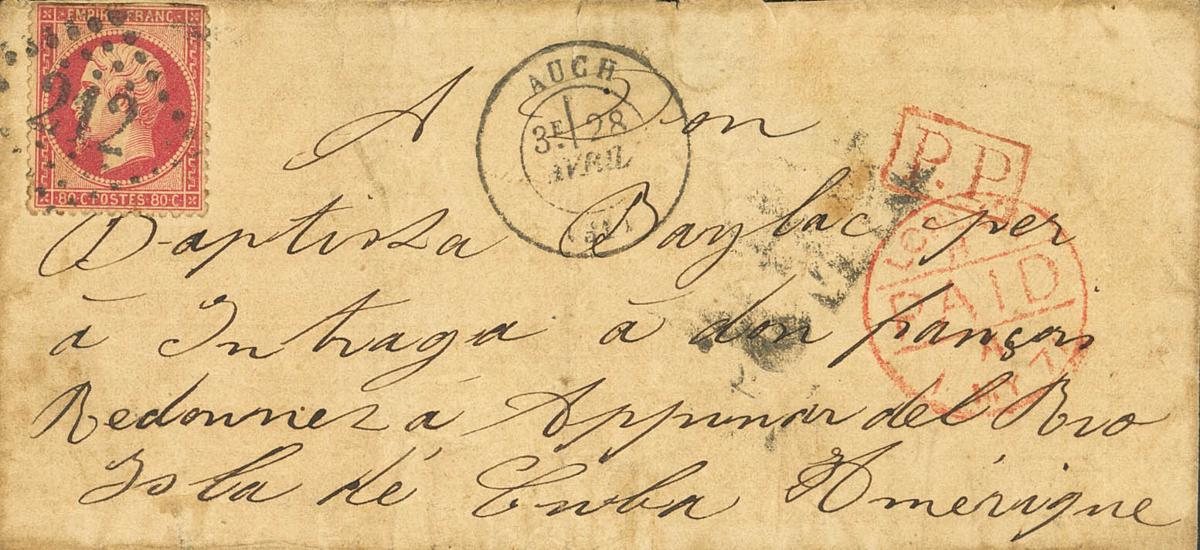 EMPIRE FRANC
212
80·C POSTES 80·C
AUCH
3E 28
AVRIL
P.P.
PAID
MY 7
A Don
Baptista Baylac per
à Intraga à don françois
Redonnez à Appunar del Rio
Isla de Cuba Amérique